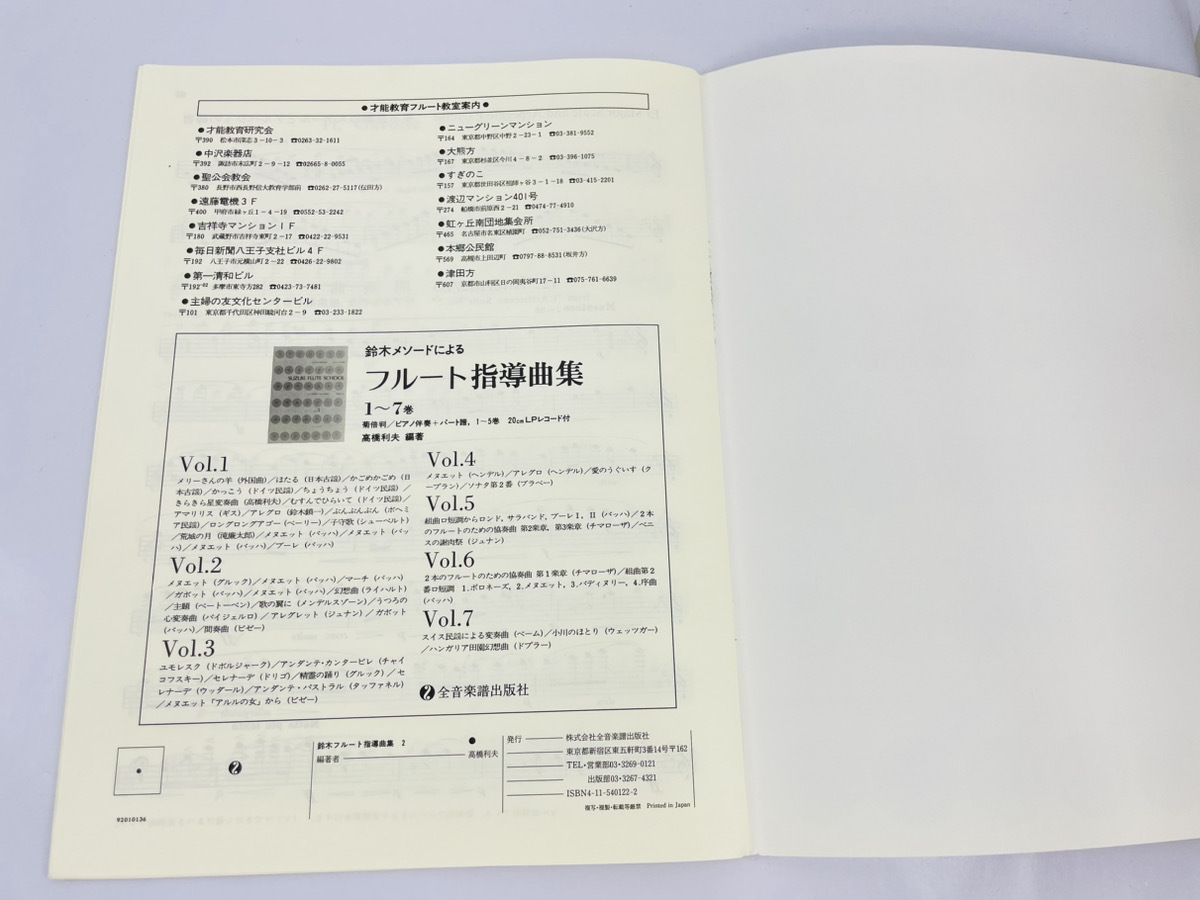 ●才能教育フルート教室案内●
●才能教育研究会
〒390 松本市深志3-10-3 ☎0263-32-1611
●中沢楽器店
〒392 諏訪市末広町2-9-12 ☎02665-8-0055
●聖公会教会
〒380 長野市西長野信大教育学部前 ☎0262-27-5117(伝田方)
●遠藤電機3F
〒400 甲府市緑ヶ丘1-4-19 ☎0552-53-2242
●吉祥寺マンション1F
〒180 武蔵野市吉祥寺東町2-17 ☎0422-22-9531
●毎日新聞八王子支社ビル4F
〒192 八王子市元横山町2-22 ☎0426-22-9802
●第一清和ビル
〒192-02 多摩市東寺方282 ☎0423-73-7481
●主婦の友文化センタービル
〒101 東京都千代田区神田駿河台2-9 ☎03-233-1822
●ニューグリーンマンション
〒164 東京都中野区中野2-23-1 ☎03-381-9552
●大熊方
〒167 東京都杉並区今川4-8-2 ☎03-396-1075
●すぎのこ
〒157 東京都世田谷区祖師ヶ谷3-1-18 ☎03-415-2201
●渡辺マンション401号
〒274 船橋市前原西2-21 ☎0474-77-4910
●虹ヶ丘南団地集会所
〒465 名古屋市名東区植園町 ☎052-751-3436(大沢方)
●本郷公民館
〒569 高槻市上田辺町 ☎0797-88-8531(坂井方)
●津田方
〒607 京都市山科区日の岡夷谷町17-11 ☎075-761-6639
鈴木メソードによる
フルート指導曲集
1〜7巻
菊倍判/ピアノ伴奏+パート譜, 1〜5巻 20cmLPレコード付
高橋利夫 編著
SUZUKI FLUTE SCHOOL
Vol.1
メリーさんの羊(外国曲)/ほたる(日本古謡)/かごめかごめ(日
本古謡)/かっこう(ドイツ民謡)/ちょうちょう(ドイツ民謡)/
きらきら星変奏曲(高橋利夫)/むすんでひらいて(ドイツ民謡)/
アマリリス(ギス)/アレグロ(鈴木鎮一)/ぶんぶんぶん(ボヘミ
ア民謡)/ロングロングアゴー(ベーリー)/子守歌(シューベルト)
/荒城の月(滝廉太郎)/メヌエット(バッハ)/メヌエット(バッ
ハ)/メヌエット(バッハ)/ブーレ(バッハ)
Vol.2
メヌエット(グルック)/メヌエット(バッハ)/マーチ(バッハ)
/ガボット(バッハ)/メヌエット(バッハ)/幻想曲(ライハルト)
/主題(ベートーベン)/歌の翼に(メンデルスゾーン)/うつろの
心変奏曲(パイジェルロ)/アレグレット(ジュナン)/ガボット
(バッハ)/間奏曲(ビゼー)
Vol.3
ユモレスク(ドボルジャーク)/アンダンテ・カンタービレ(チャイ
コフスキー)/セレナーデ(ドリゴ)/精霊の踊り(グルック)/セ
レナーデ(ウッダール)/アンダンテ・パストラル(タッファネル)
/メヌエット「アルルの女」から(ビゼー)
Vol.4
メヌエット(ヘンデル)/アレグロ(ヘンデル)/愛のうぐいす(ク
ープラン)/ソナタ第2番(ブラベー)
Vol.5
組曲ロ短調からロンド, サラバンド, ブーレI, II(バッハ)/2本
のフルートのための協奏曲 第2楽章, 第3楽章(チマローザ)/ベニ
スの謝肉祭(ジュナン)
Vol.6
2本のフルートのための協奏曲 第1楽章(チマローザ)/組曲第2
番ロ短調 1.ポロネーズ, 2.メヌエット, 3.バディヌリー, 4.序曲
(バッハ)
Vol.7
スイス民謡による変奏曲(ベーム)/小川のほとり(ウェッツガー)
/ハンガリア田園幻想曲(ドプラー)
全音楽譜出版社
鈴木フルート指導曲集 2 ●
編著者 高橋利夫
発行 株式会社全音楽譜出版社
東京都新宿区東五軒町3番14号〒162
TEL・営業部03・3269-0121
出版部03・3267-4321
ISBN4-11-540122-2
複写・複製・転載等厳禁 Printed in Japan
92010136